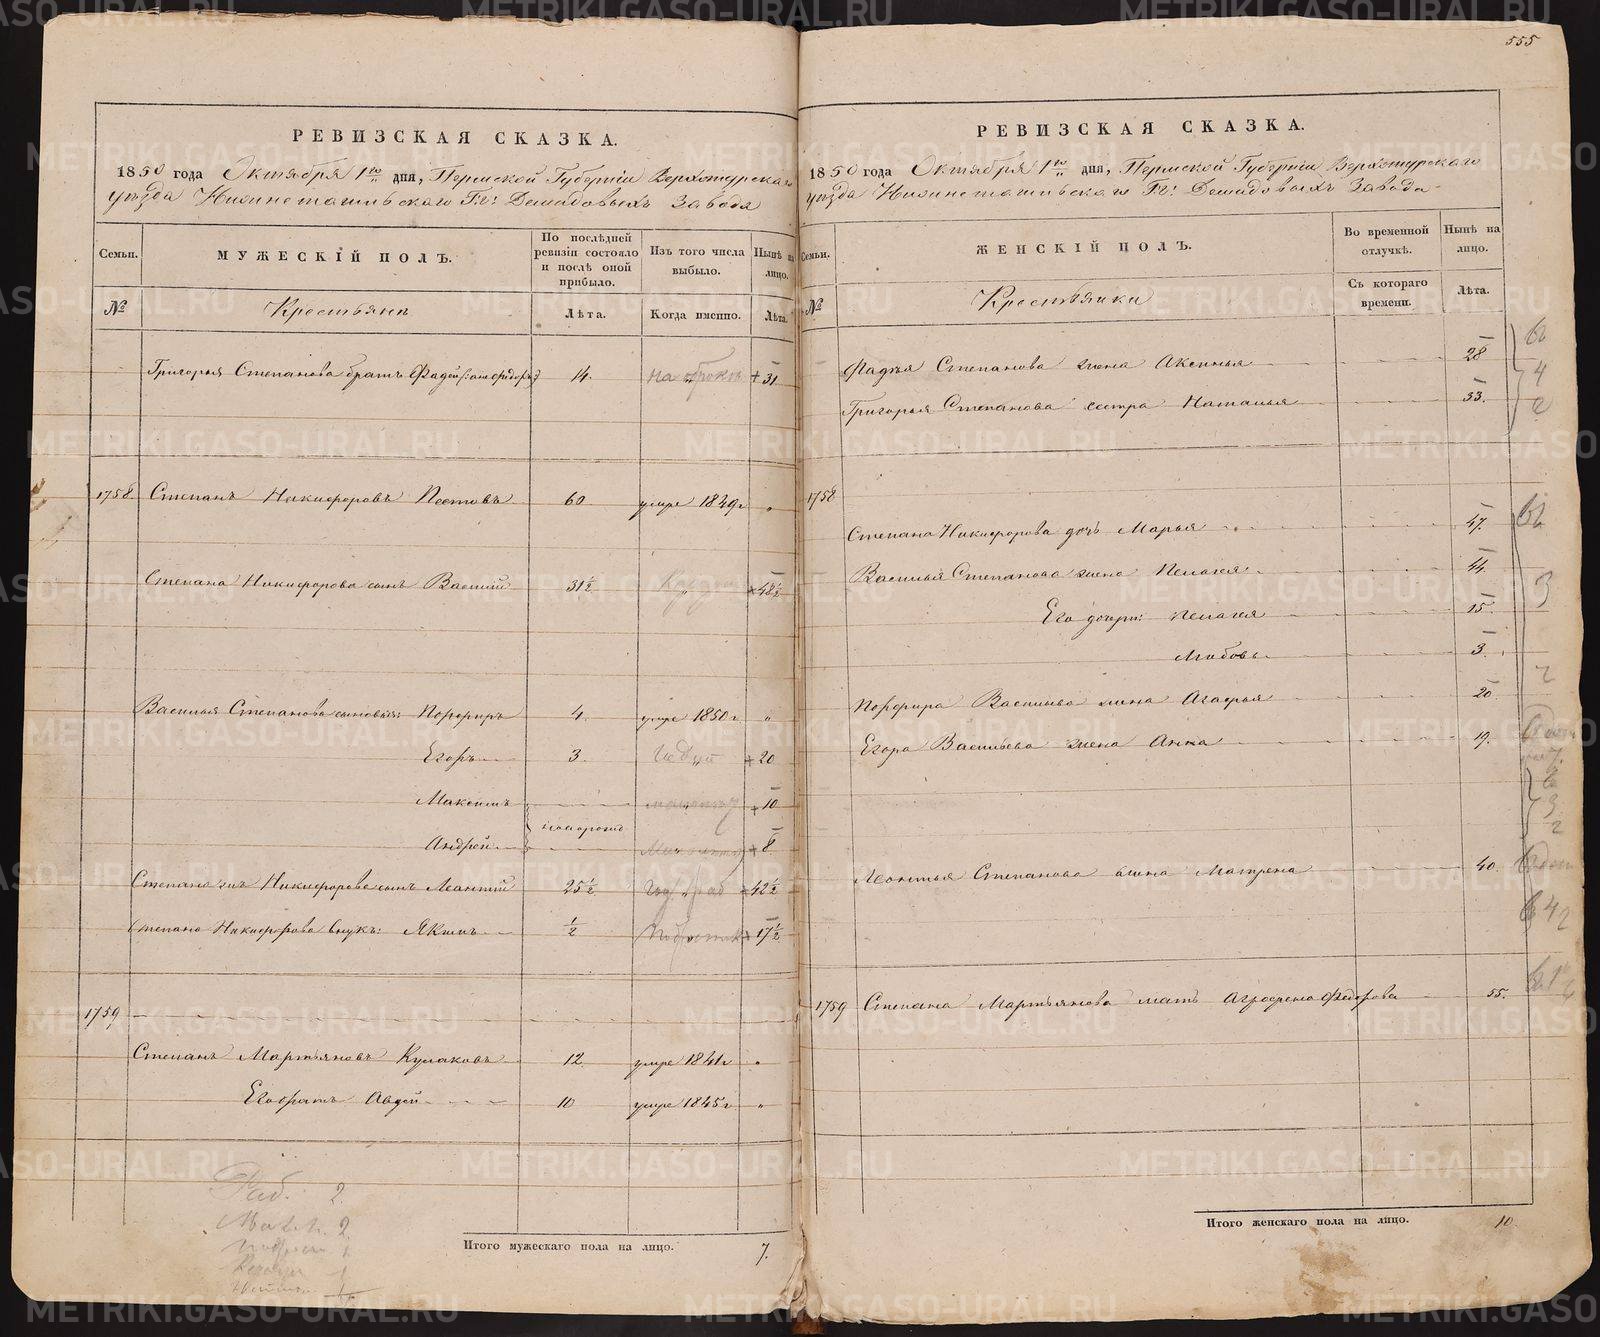 555
РЕВИЗСКАЯ СКАЗКА.
1850 года Октября 1го дня, Пермской Губерніи Верхотурскаго
уѣзда Нижнетагильскаго Гг: Демидовыхъ Завода
Семьи. МУЖЕСКІЙ ПОЛЪ. По послѣдней ревизіи состояло и послѣ оной прибыло. Изъ того числа выбыло. Нынѣ на лицо.
№ Крестьянъ Лѣта. Когда именно. Лѣта.
Григорья Степанова братъ Фадей 14. на оброкѣ + 31
1758. Степанъ Никифоровъ Пестовъ 60 умре 1840г "
Степана Никифорова сынъ Василій 31½ 48½
Василья Степанова сыновья: Порфиръ 4. умре 1850г "
Егоръ 3. + 20
Максимъ + 10
новорожд
Андрей + 8
Степана Никифорова сынъ Леонтій 25½ 42½
Степана Никифорова внукъ: Якимъ ½ Подростокъ 17½
1759
Степанъ Мартьяновъ Кулаковъ 12. умре 1841г "
Его братъ Авдей 10 умре 1845г "
Раб. 2.
Мал. 2.
Итого мужескаго пола на лицо. 7.
РЕВИЗСКАЯ СКАЗКА.
1850 года Октября 1го дня, Пермской Губерніи Верхотурскаго
уѣзда Нижнетагильскаго Гг: Демидовыхъ Завода
Семьи. ЖЕНСКІЙ ПОЛЪ. Во временной отлучкѣ. Нынѣ на лицо.
№ Крестьянки Съ котораго времени. Лѣта.
Фадѣя Степанова жена Аксинья 28
Григорья Степанова сестра Наталья 33.
1758
Степана Никифорова дочь Марья 47.
Василья Степанова жена Пелагея 44.
Его дочри: Пелагея 15.
Любовь 3.
Порфира Васильева жена Агафья 20
Егора Васильева жена Анна 19.
Леонтья Степанова жена Матрена 40.
1759 Степана Мартьянова мать Агрофена Федорова 55.
Итого женскаго пола на лицо. 10
METRIKI.GASO-URAL.RU